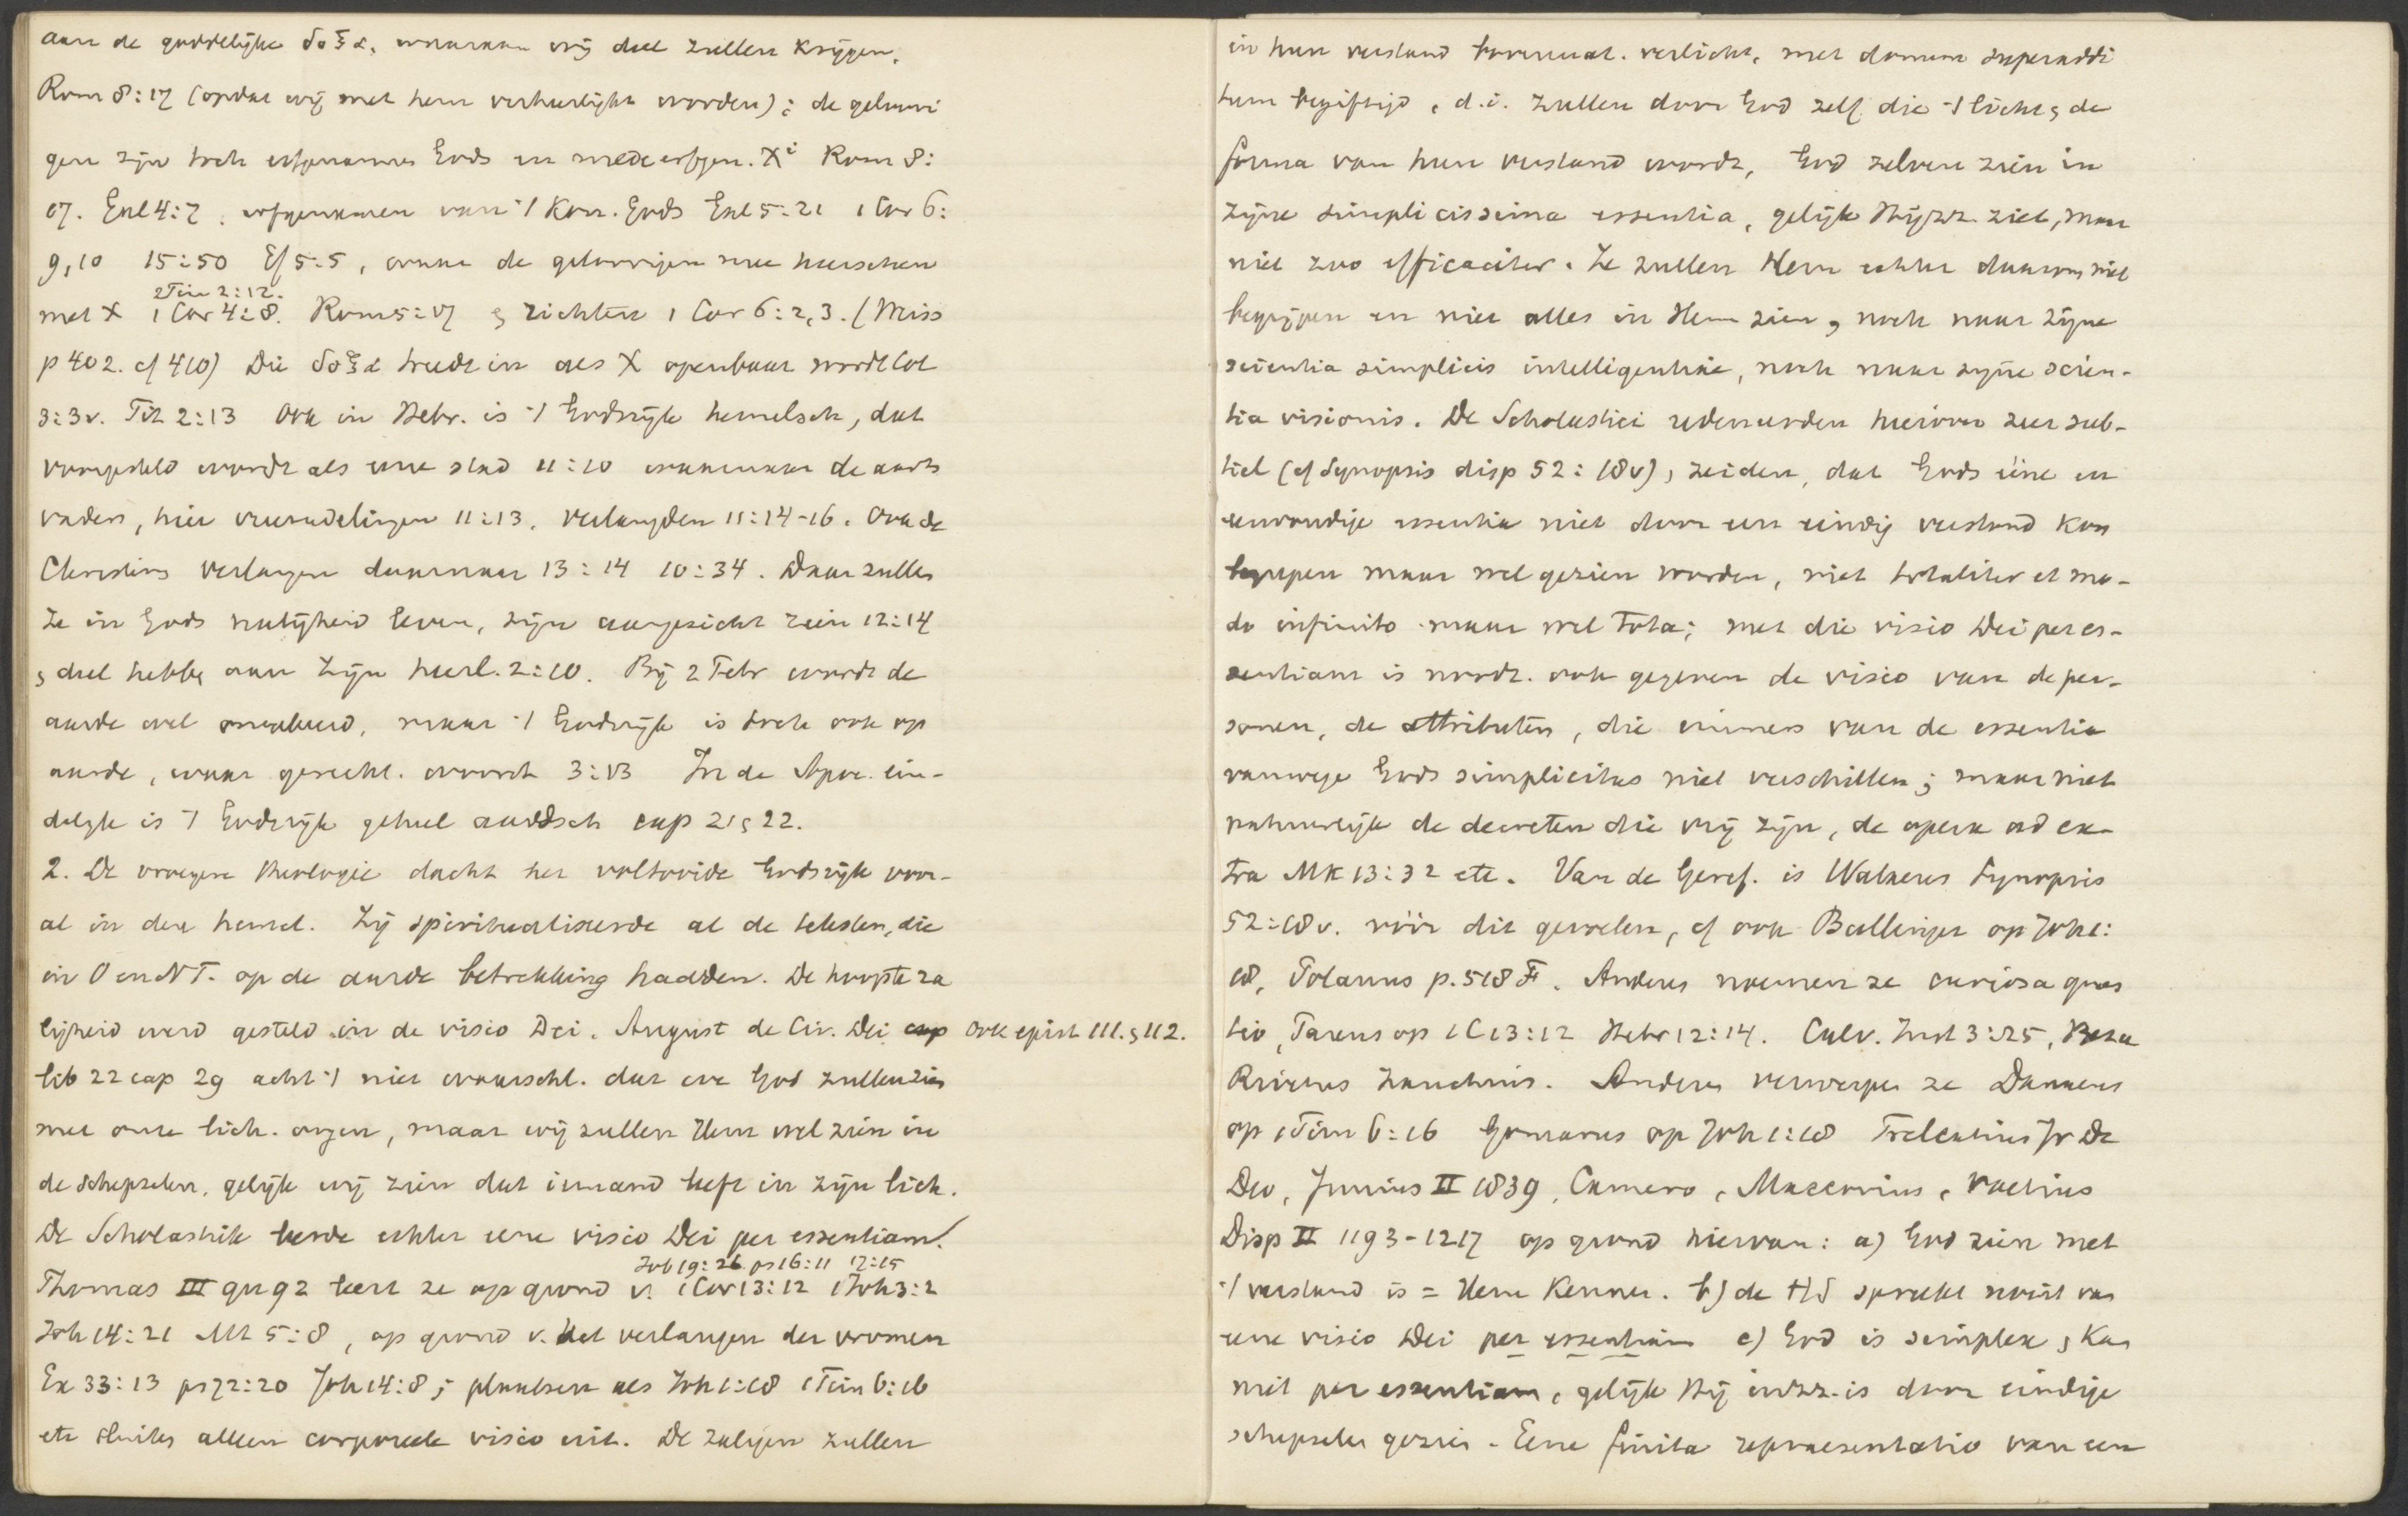 aan de goddelijke δοξα, waaraan wij deel zullen krijgen,
Rom 8:17 (opdat wij met hem verheerlijkt worden); de geloovi
gen zijn toch erfgenamen Gods en medeerfgen. Xi Rom 8:
17. Gal 4:7. erfgenamen van 't Kon. Gods Gal 5:21 1 Cor 6:
9,10 15:50 Ef 5:5, waar de geloovigen mee heerschen
2 Tim 2:12.
met X 1 Cor 4:8. Rom 5:17 & richten 1 Cor 6:2,3. (Weiss
p 402. cf 410) Die δοξα treedt in als X openbaar wordt Col
3:3v. Tit 2:13 Ook in Hebr. is 't Godsrijk hemelsch, dat
voorgesteld wordt als eene stad 11:10 waarnaar de aarts
vaders, hier vreemdelingen 11:13, verlangden 11:14-16. Ook de
Christens verlangen daarnaar 13:14 10:34. Daar zullen
ze in Gods nabijheid leven, zijn aangezicht zien 12:14
& deel hebben aan zijn heerl. 2:10. Bij 2 Petr wordt de
aarde wel , maar 't Godsrijk is toch ook op
aarde, waar gerecht. woont 3:13 In de Apoc. ein-
delijk is 't Godsrijk geheel aardsch cap 21 & 22.
2. De vroegere theologie dacht het voltooide Godsrijk voor-
al in den hemel. Zij spiritualiseerde al de teksten, die
in O en N T. op de aarde betrekking hadden. De hoogste za
ligheid werd gesteld in de visio Dei. August de Civ. Dei cap ook epist 111. & 112.
lib 22 cap 29 acht 't niet waarschl. dat we God zullen zien
met onze lich. oogen, maar wij zullen Hem wel zien in
de schepselen, gelijk wij zien dat iemand leeft in zijn lich.
De Scholastiek leerde echter eene visio Dei per essentiam.
Job 19:26 ps 16:11 17:15
Thomas III qu 92 leert ze op grond v. 1 Cor 13:12 1 Joh 3:2
Joh 14:21 Mt 5:8, op grond v. het verlangen der vromen
Ex 33:13 ps 72:20 Joh 14:8; plaatsen als Joh 1:18 1 Tim 6:16
etc sluiten alleen corporeele visio uit. De zaligen zullen
in hun verstand bovennat. verlicht, met donum superaddi
tum begiftigd, d.i. zullen door God zelf die 't licht & de
forma van hun verstand wordt, God zelven zien in
zijne simplicissima essentia, gelijk Hij zz. ziet, maar
niet zoo efficaciter. Ze zullen Hem echter daarom niet
begrijpen en niet alles in Hem zien, noch naar zijne
scientia simplicis intelligentiae, noch naar zijne scien-
tia visionis. De Scholastici redeneerden hierover zeer sub-
tiel (cf Synopsis disp 52:18v), zeiden, dat Gods ééne en
eenvoudige essentia niet door een eindig verstand kon
begrepen maar wel gezien worden, niet totaliter et mo-
do infinito maar wel tota; met die visio Dei per es-
sentiam is noodz. ook gegeven de visio van de per-
sonen, de attributen, die immers van de essentia
vanwege Gods simplicitas niet verschillen; maar niet
natuurlijk de decreten die vrij zijn, de opera ad ex-
tra Mk 13:32 etc. Van de Geref. is Walaeus Synopsis
52:18v. vóór dit gevoelen, cf ook Bullinger op Joh 1:
18, Polanus p. 518 F. Anderen noemen ze curiosa quaes
tio, Pareus op 1 C 13:12 Hebr 12:14. Calv. Inst 3:25, Beza
Rivetus Zanchius. Anderen verwerpen ze Danaeus
op 1 Tim 6:16 Gomarus op Joh 1:18 Trelcatius Jr De
Deo, Junius II 1839, Camero, Maccovius, Voetius
Disp II 1193-1217 op grond hiervan: a) God zien met
't verstand is = Hem kennen. b) de HS spreekt nooit van
eene visio Dei per essentiam c) God is simplex & kan
niet per essentiam, gelijk Hij in zz. is door eindige
schepselen gezien. Eene finita repraesentatio van een